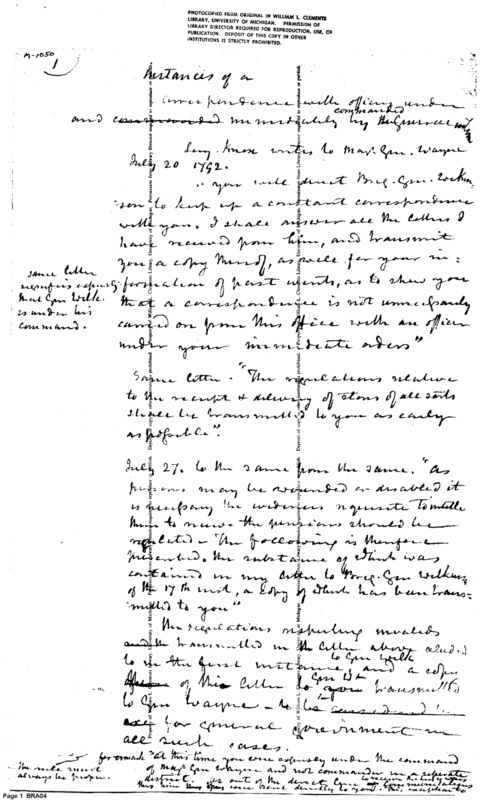 PHOTOCOPIED FROM ORIGINAL IN WILLIAM L. CLEMENTS
LIBRARY, UNIVERSITY OF MICHIGAN. PERMISSION OF
LIBRARY DIRECTOR REQUIRED FOR REPRODUCTION, USE, OR
PUBLICATION. DEPOSIT OF THIS COPY IN OTHER
INSTITUTIONS IS STRICTLY PROHIBITED.
M-1050
1
Instances of a
Correspondence with officers under
commanded
and commanded immediately by the General
Secy. Knox writes to Maj. Gen. Wayne
July 20 1792.
"You will direct Brig. Gen. Wilkin
son to keep up a constant correspondence
with you. I shall answer all the letters I
have received from him, and transmit
you a copy thereof, as well for your in=
formation of past events, as to shew you
that a correspondence is not unnecessarily
carried on from this office with an officer
under your immediate orders"
Same letter
signifies expressly
that Gen Wilk.
is under his
command.
Same letter. "The regulations relative
to the receipt & delivery of stores of all sorts
shall be transmitted to you as early
as possible".
July 27. to the same from the same. "as
persons may be wounded or disabled it
is necessary the evidences requisite to entitle
them to receive the pensions should be
regulated - The following is therefore
presented. The substance of which was
contained in my letter to Brig. Gen Wilkin
of the 17th inst, a copy of which has been trans-
mitted to you"
The regulations respecting invalids
and the transmitted in the letter above alluded
to Gen Wilk
to in the first instance and a copy
of this letter to Gen transmitted
to Gen Wayne - to be
for general government in
all such cases.
for remark "at this time you were expressly under the command
of Maj. Gen Wayne and not commander in a separate
district.
The rule must
always be proper.
Page 1 BRA04